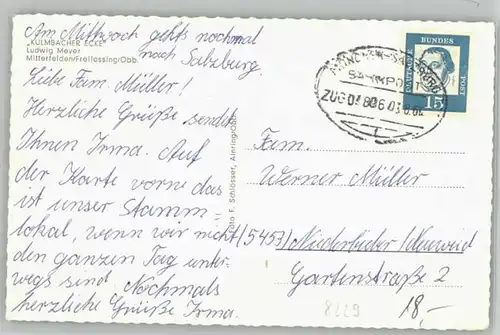 Am Mittwoch gehts nochmal
nach Salzburg.
„KULMBACHER ECKE"
Ludwig Meyer
Mitterfelden/Freilassing/Obb.
Liebe Fam. Müller!
Herzliche Grüße sendet
Ihnen Irma. Auf
der Karte vorne das
ist unser Stamm=
lokal, wenn wir nicht
den ganzen Tag unter-
wegs sind. Nochmals
herzliche Grüße Irma.
Foto F. Schlosser, Ainring/Obb.
DEUTSCHE
BUNDES
POST
15
MÜNCHEN-SALZBURG
BAHNPOST
ZUG
Fam.
Werner Müller
(5453) Niederbieber/Neuwied
Gartenstraße 2
8229
18,-